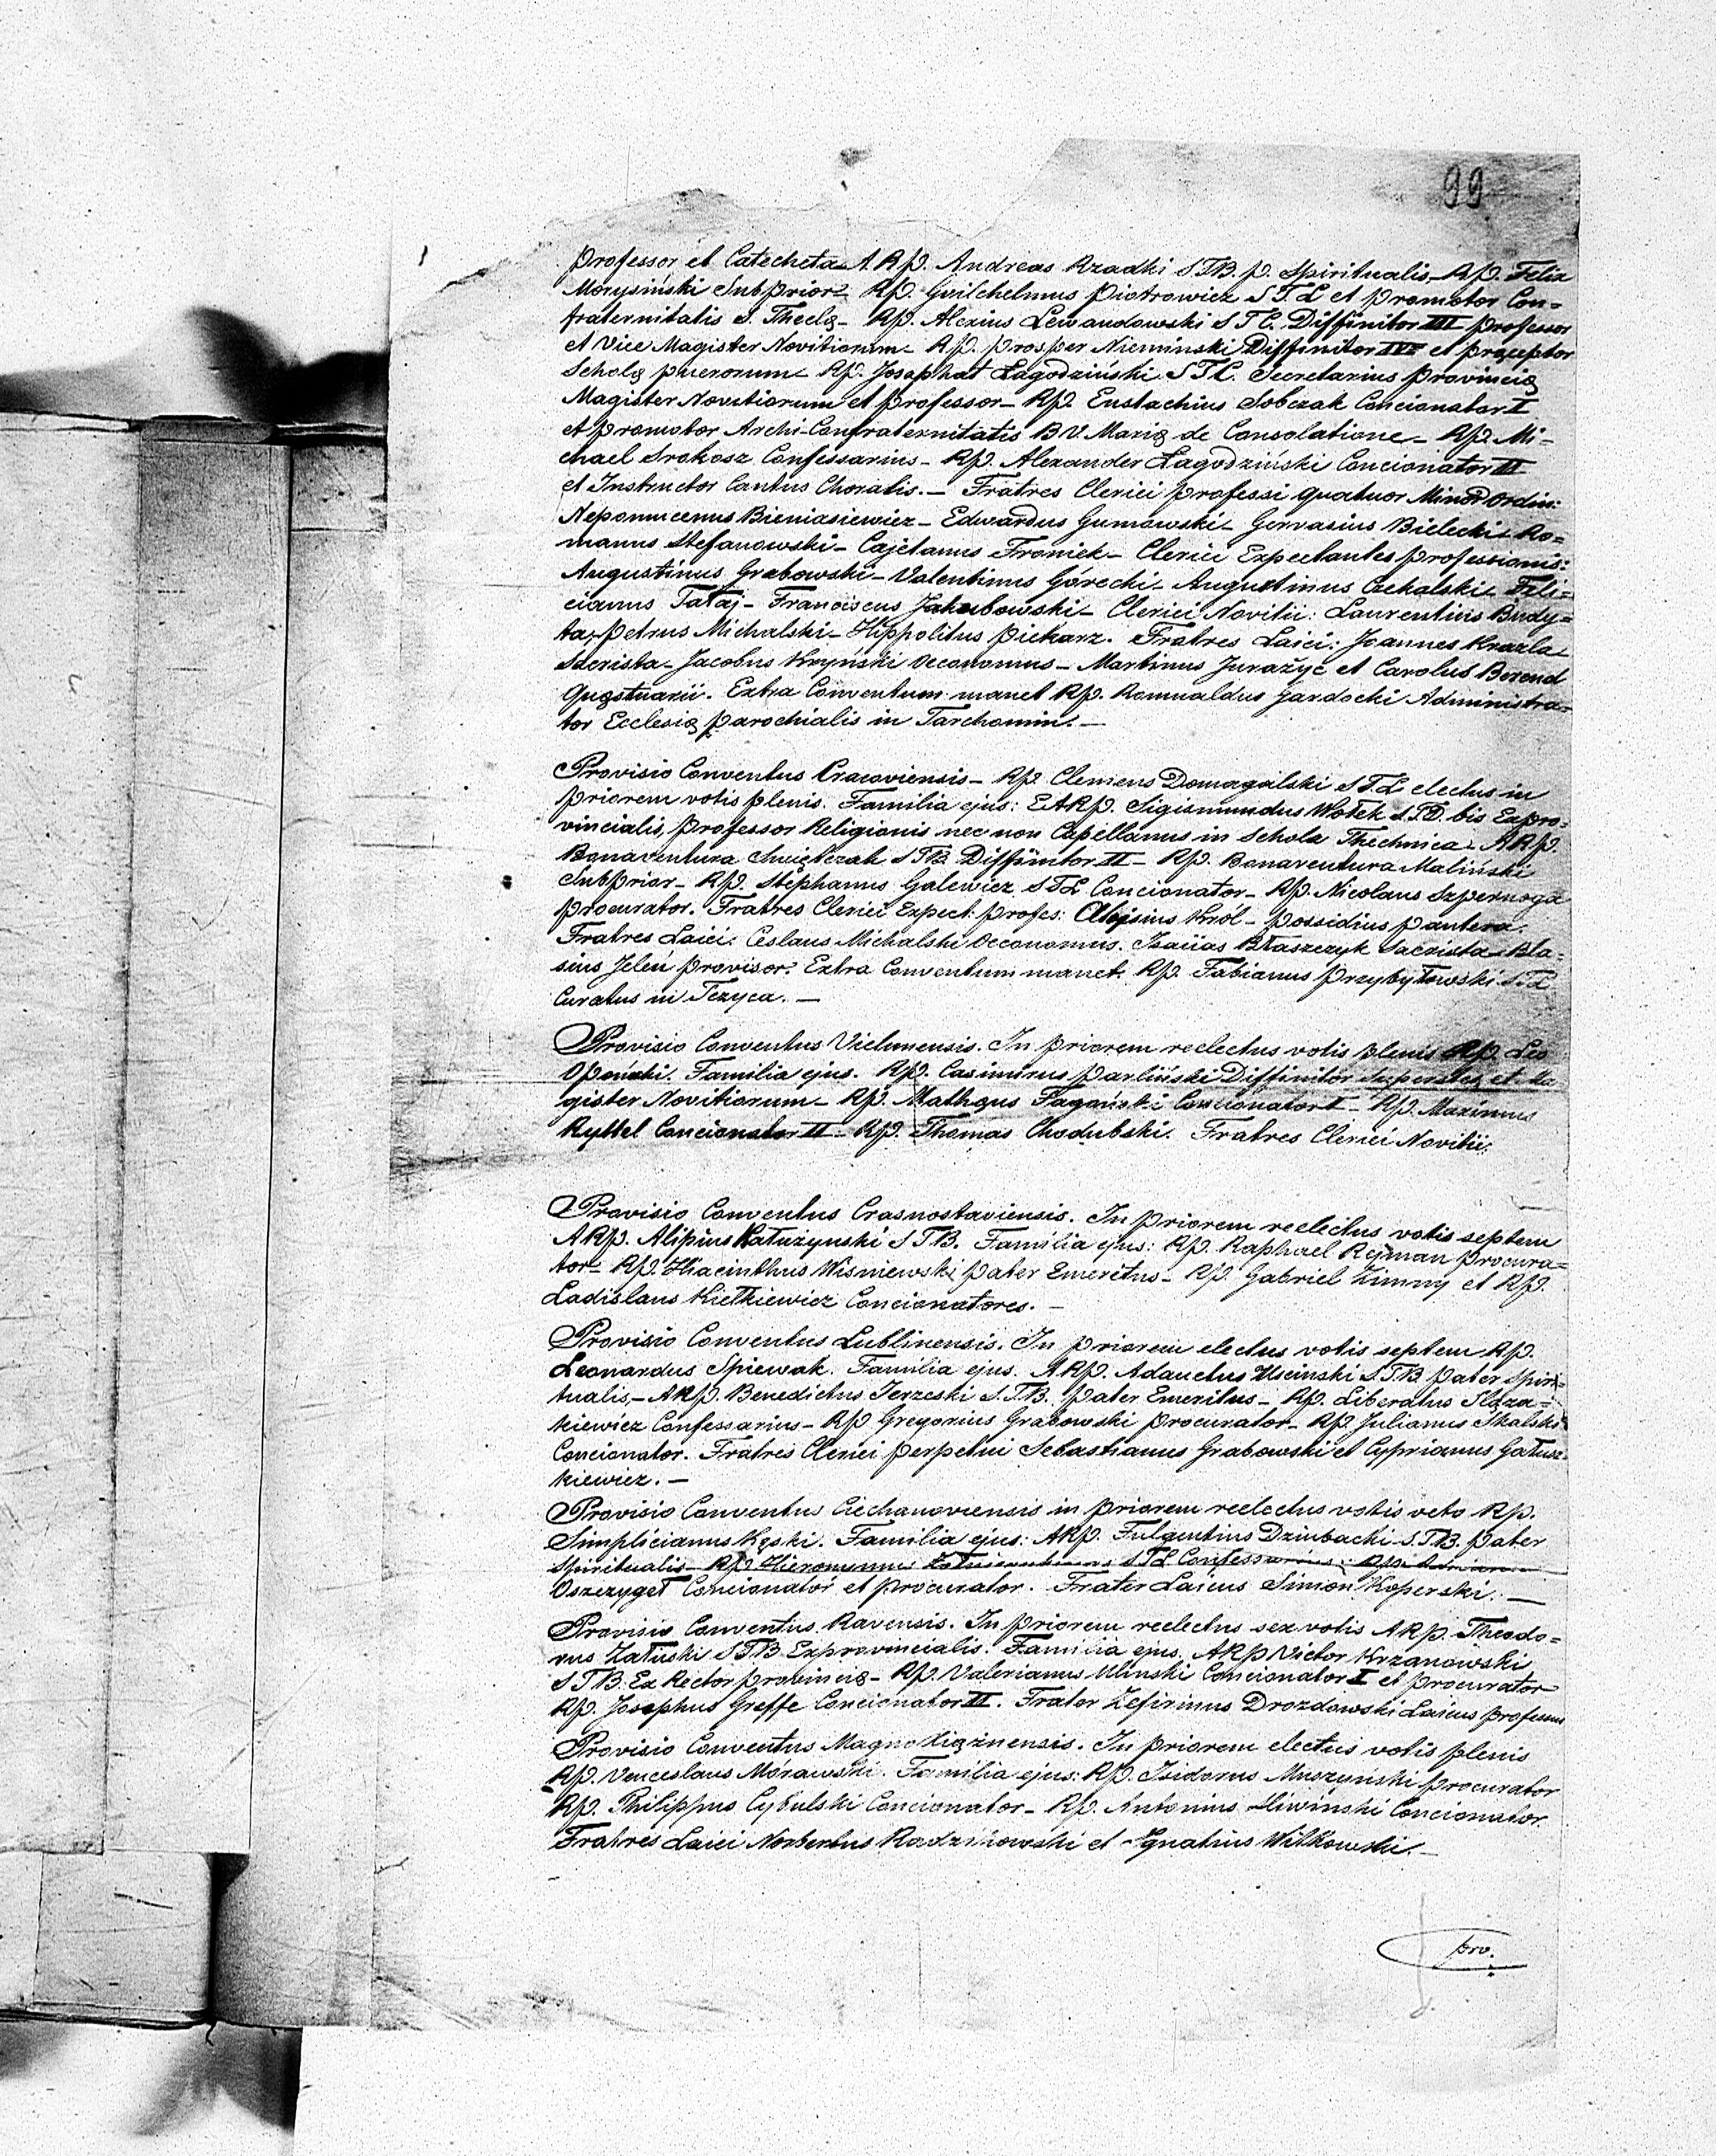 99
Professor et Catecheta A.Rp. Andreas Rzadki STB. p. Spiritualis. Rp. Felix
Morysiński Subprior. Rp. Guilchelmus Piotrowicz S.T.L et promotor Con=
fraternitatis S. Theclę - Rp. Alexius Lewandowski S T L. Diffinitor III professor
et Vice Magister Novitiorum - Rp. Prosper Niemiński Diffinitor IV et pręceptor
Scholę puerorum - Rp. Josaphat Łagodziński S.T.L. Secretarius Provincię
Magister Novitiorum et professor - Rp. Eustachius Sobczak Concionator I
et promotor Archi-Confraternitatis B V. Marię de Consolatione - Rp. Mi=
chael Srokosz Confessarius - Rp. Alexander Łagodziński Concionator II
et Instructor Cantus Choralis. - Fratres Clerici professi quatuor Minor Ordin:
Nepomucenus Bieniasiewicz - Edwardus Gumowski - Gervasius Bielecki - Ro=
manus Stefanowski - Cajetanus Froniek - Clerici Expectantes professionis:
Augustinus Grabowski - Valentinus Górecki - Augustinus Czekalski - Feli=
cianus Tataj - Franciscus Jakubowski - Clerici Novitii: Laurentius Budy=
ta, Petrus Michalski - Hippolitus Piekarz. Fratres Laici: Joannes Krazla
Sacrista - Jacobus Kryński Oeconomus - Martinus Jurażyc et Carolus Berend
Quęstuarii. Extra Conventum manet Rp. Romualdus Gardocki Administra=
tor Ecclesię parochialis in Tarchomin. -
Provisio Conventus Cracoviensis - Rp. Clemens Domagalski STL electus in
Priorem votis plenis. Familia ejus: EARp. Sigismundus Wołek S.T.D. bis Expro=
vincialis, professor Religionis nec non Capellanus in Schola Thechnica - ARp.
Bonaventura Swięczak STB. Diffinitor II - Rp. Bonaventura Maliński
Subprior - Rp. Stephanus Galewicz STL Concionator - Rp. Nicolaus Szpernoga
procurator. Fratres Clerici Expect: profes: Aloisius Król - Possidius Pantera.
Fratres Laici: Ceslaus Michalski Oeconomus. Isaiias Błaszczyk Sacrista - Bla=
sius Jeleń provisor. Extra Conventum manet. Rp. Fabianus Przybyłowski STL
Curatus in Tczyca. -
Provisio Conventus Vielunensis. In priorem reelectus votis plenis Rp. Leo
Oponski. Familia ejus. Rp. Casimirus Parliński Diffinitor Superstes et Ma
gister Novitiorum - Rp. Mathęus Fagański Concionator I - Rp. Maximus
Ryttel Concionator II - Rp. Thomas Chodubski. Fratres Clerici Novitii.
Provisio Conventus Crasnostaviensis. In priorem reelectus votis septem
ARp. Alipius Kałuzynski S TB. Familia ejus: Rp. Raphael Rejman procura=
tor - Rp. Hiacinthus Wisniewski pater Emeritus - Rp. Gabriel Zimny et Rp.
Ladislaus Kiełkiewicz Concionatores. -
Provisio Conventus Lublinensis. In priorem electus votis septem Rp.
Leonardus Spiewak. Familia ejus. ARp. Adauctus Uscinski S.TB. pater Spiri=
tualis, - ARp. Benedictus Jerzeski S.T.B. pater Emeritus - Rp. Liberatus
kiewicz Confessarius - Rp Gregorius Grabowski procurator - Rp. Julianus Skalski
Concionator. Fratres Clerici perpetui Sebastianus Grabowski et Cyprianus Gałusz=
kiewicz. -
Provisio Conventus Ciechanoviensis in priorem reelectus votis octo Rp.
Simplicianus Kęski. Familia ejus: ARp. Fulgentius Dziubacki S.T.B. pater
Spiritualis - Rp. Hieronymus STL Confessarius - Rp.
Oszczygeł Concionator et procurator. Frater Laicus Simon Koperski. -
Provisio Conventus Ravensis. In priorem reelectus sex votis ARp. Theodo=
rus Załuski STB Exprovincialis. Familia ejus. ARp Victor Krzanowski
S T B. Ex Rector provincię - Rp. Valerianus Minski Concionator I et procurator
Rp. Josephus Greffe Concionator II. Frater Zefirinus Drozdowski Laicus professus
Provisio Conventus Magno Xiążnensis. In priorem electus votis plenis
Rp. Venceslaus Morawski. Familia ejus: Rp. Isidorus Muszyński procurator
Rp. Philippus Cybulski Concionator - Rp. Antonius Sliwinski Concionator
Fratres Laici Norbertus Radzikowski et Ignatius Witkowski. -
pro.